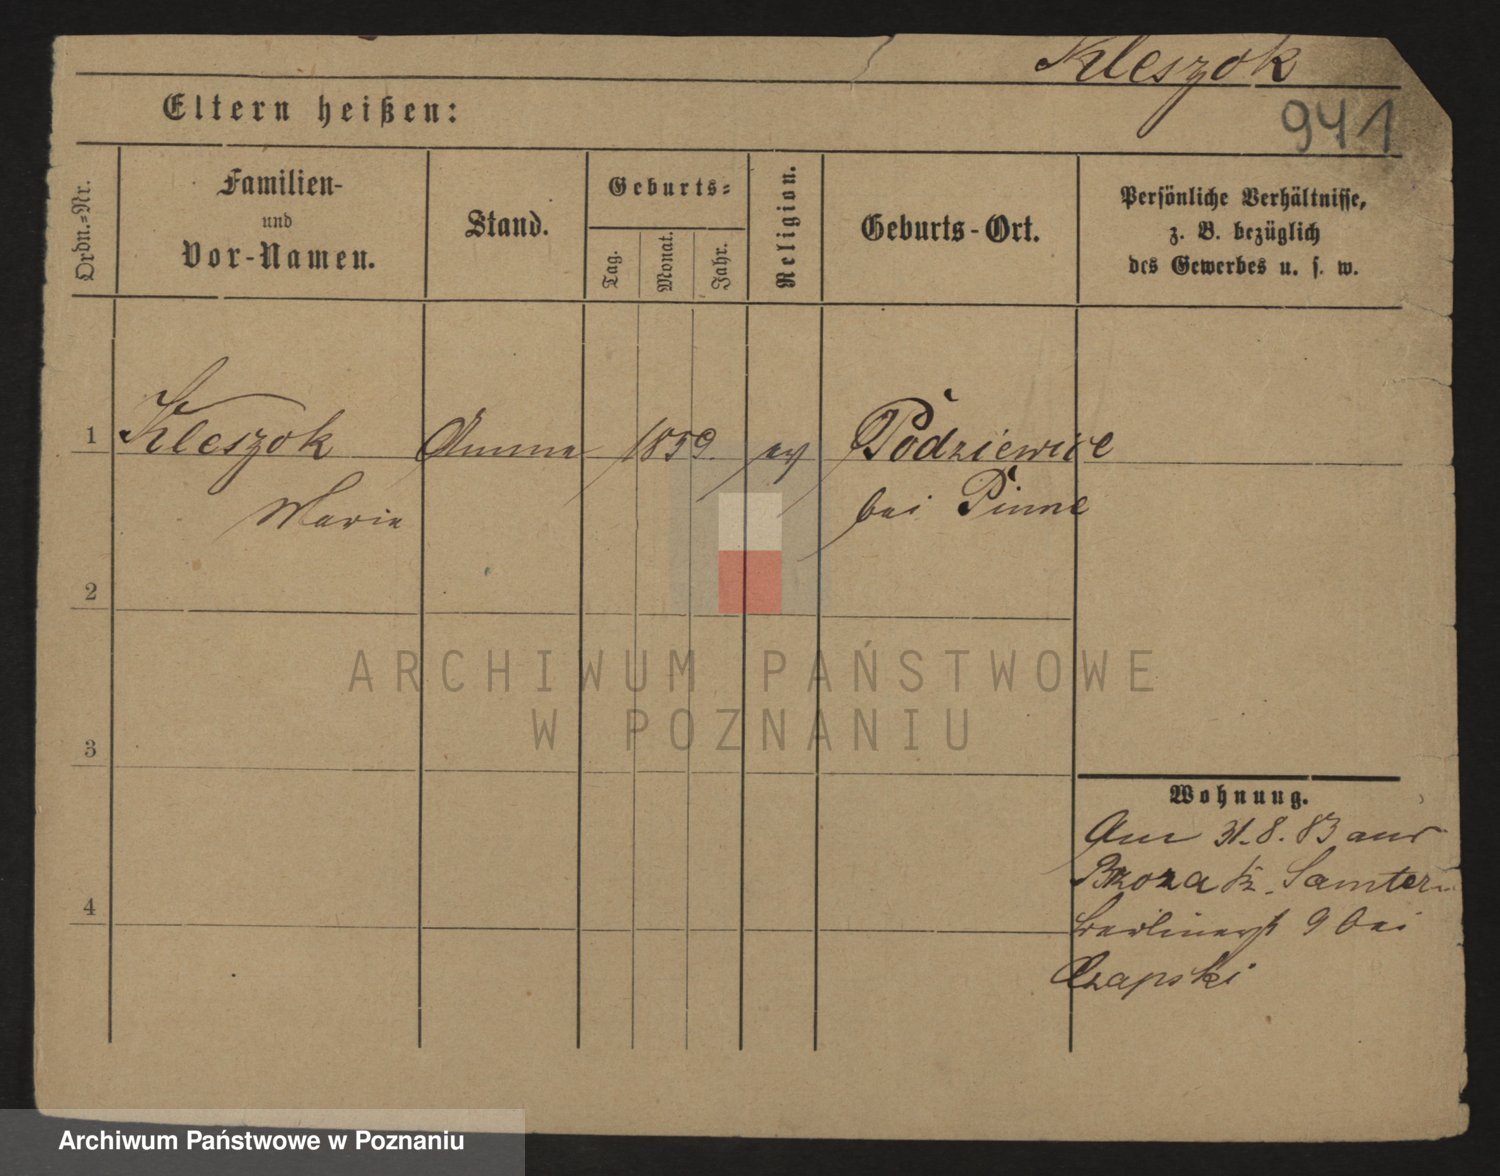 Kleszok
941
Eltern heißen:
Ordn.=Nr.
Familien-
und
Vor-Namen.
Stand.
Geburts=
Tag.
Monat.
Jahr.
Religion.
Geburts-Ort.
Persönliche Verhältnisse,
z. B. bezüglich
des Gewerbes u. s. w.
1 Kleszok Amme 1859. ev Podziewice
Marie bei Pinne
2
ARCHIWUM PAŃSTWOWE
W POZNANIU
3
Wohnung.
Am 31.8.83 aus
Broza Kr. Samter
4
Berlinerst 9 bei
Czapski
Archiwum Państwowe w Poznaniu